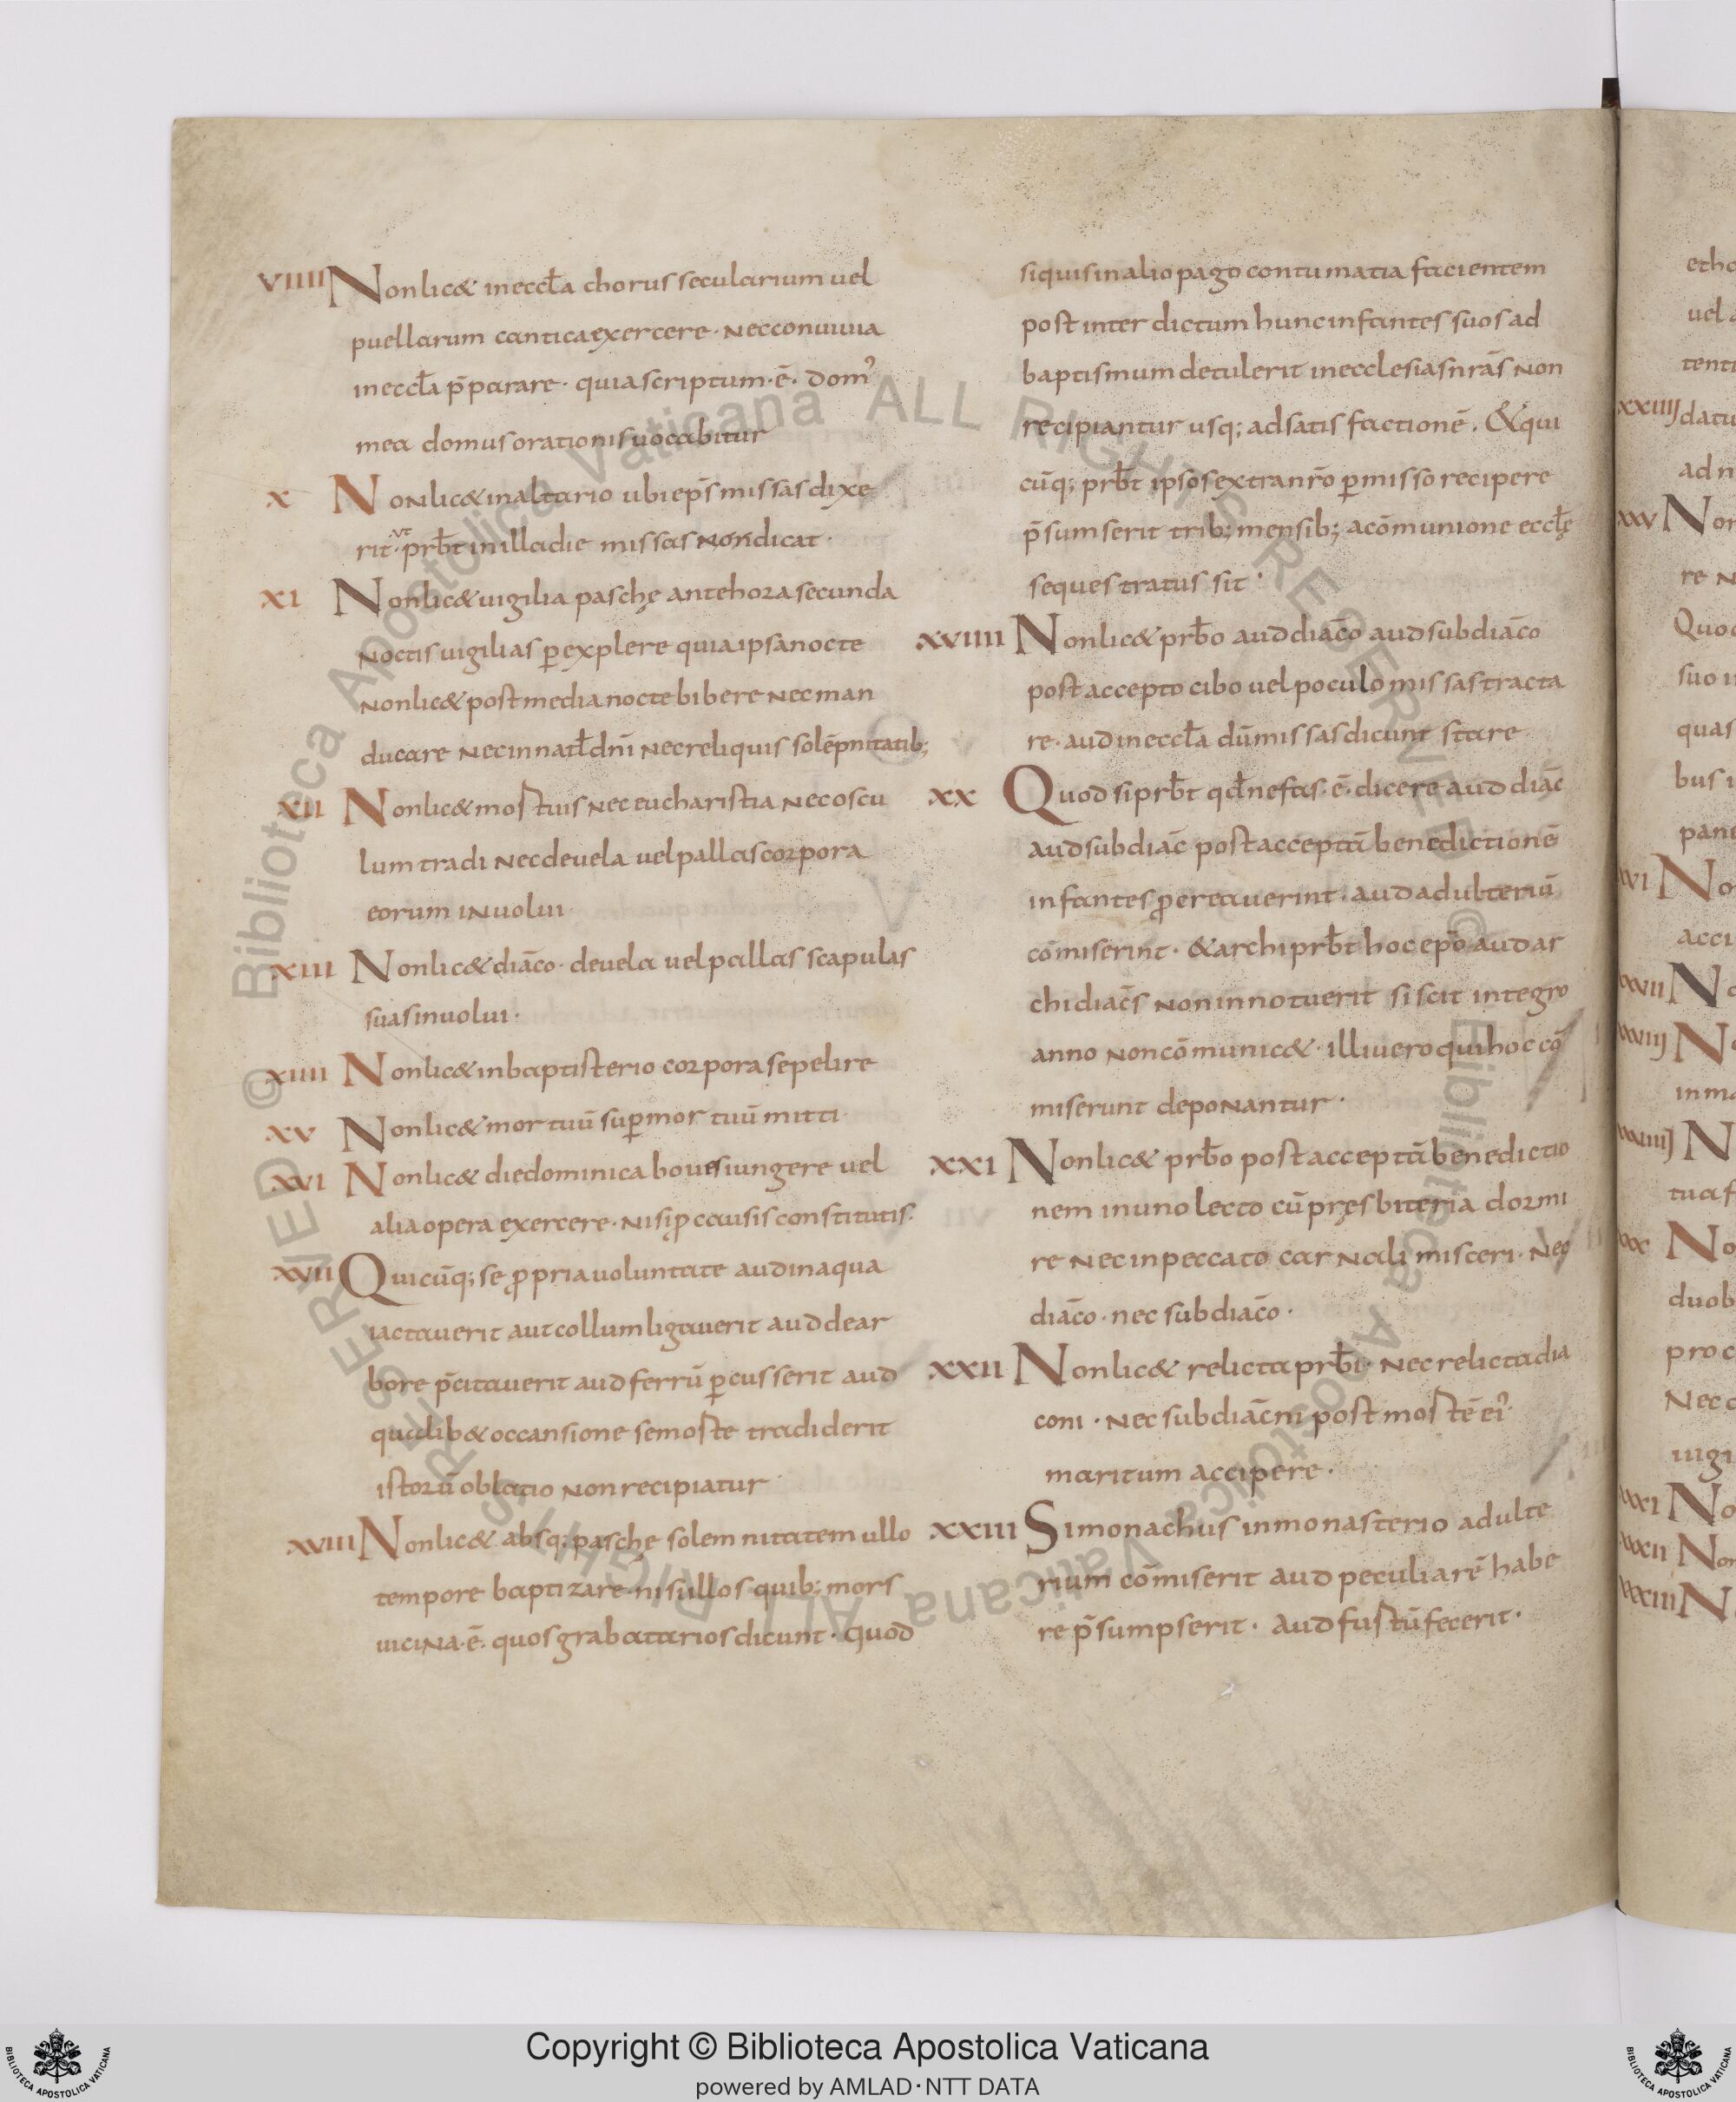 VIIII Non lic& in eccl̄a chorus secularium uel
puellarum cantica exercere · nec conuiuia
in eccl̄a p̄parare · quia scriptum · ē · dom᾿
mea domus orationis uocabitur
X Non lic& in altario ubi ep̄s missas dixe
rit · ut prb̄t in illa die missas non dicat ·
XI Non lic& uigilia paschę ante hora secunda
noctis uigilias ꝑexplere quia ipsa nocte
non lic& post media nocte bibere nec man
ducare nec in natl̄ dn̄i nec reliquis solēpnitatib;
XII Non lic& mostuis nec eucharistia nec oscu
lum tradi nec de uela uel pallas corpora
eorum inuolui ·
XIII Non lic& diac̄o · de uela uel pallas scapulas
suas inuolui ·
XIIII Non lic& in baptisterio corpora sepelire
XV Non lic& mortuū suꝑ mortuū mitti ·
XVI Non lic& die dominica boues iungere uel
alia opera exercere · nisi ꝓ causis constitutis ·
XVII Quicūq; se ꝓpria uoluntate aud in aqua
iactauerit aut collum ligauerit aud de ar
bore p̄citauerit aud ferrū ꝑcusserit aud
qualib& occansione se moste tradiderit
istorū oblatio non recipiatur
XVIII Non lic& absq; paschę solemnitatem ullo
tempore baptizare · nis ullos quib; mors
uicina · ē · quos grabatarios dicunt · quod
si quis in alio pago contumatia facientem
post inter dictum hunc infantes suos ad
baptismum detulerit in ecclesias nrās non
recipiantur usq; ad satis factionē · & qui
cūq; prb̄t ipsos extra nr̄o ꝑmisso recipere
p̄sumserit trib; mensib; a cōmunione eccl̄ę
sequestratus sit ·
XVIIII Non lic& prb̄o aud diac̄o aud subdiac̄o
post accepto cibo uel poculo missas tracta
re · aud in eccl̄a dū missas dicunt stare
XX Quod si prb̄t qd̄ nefas · ē · dicere aud diac̄
aud subdiac̄ post acceptā benedictionē
infantes ꝓereauerint · aud adulteriū
cōmiserint · & archiprb̄t hoc ep̄o aud ar
chidiac̄s non innotuerit si scit integro
anno non cōmunic& · illi uero qui hoc cō
miserunt deponantur ·
XXI Non lic& prb̄o post acceptā benedictio
nem in uno lecto cū pręsbiteria dormi
re nec in peccato carnali misceri · nec
diac̄o · nec subdiac̄o ·
XXII Non lic& relicta prb̄i · nec relicta dia
coni · nec subdiac̄ni post mostē ei᾿ ·
maritum accipere ·
XXIII Si monachus in monasterio adulte
rium cōmiserit aud peculiarē habe
re p̄sumpserit · aud fustū fecerit ·
XXIIIJ
XXV
Copyright © Biblioteca Apostolica Vaticana
powered by AMLAD·NTT DATA